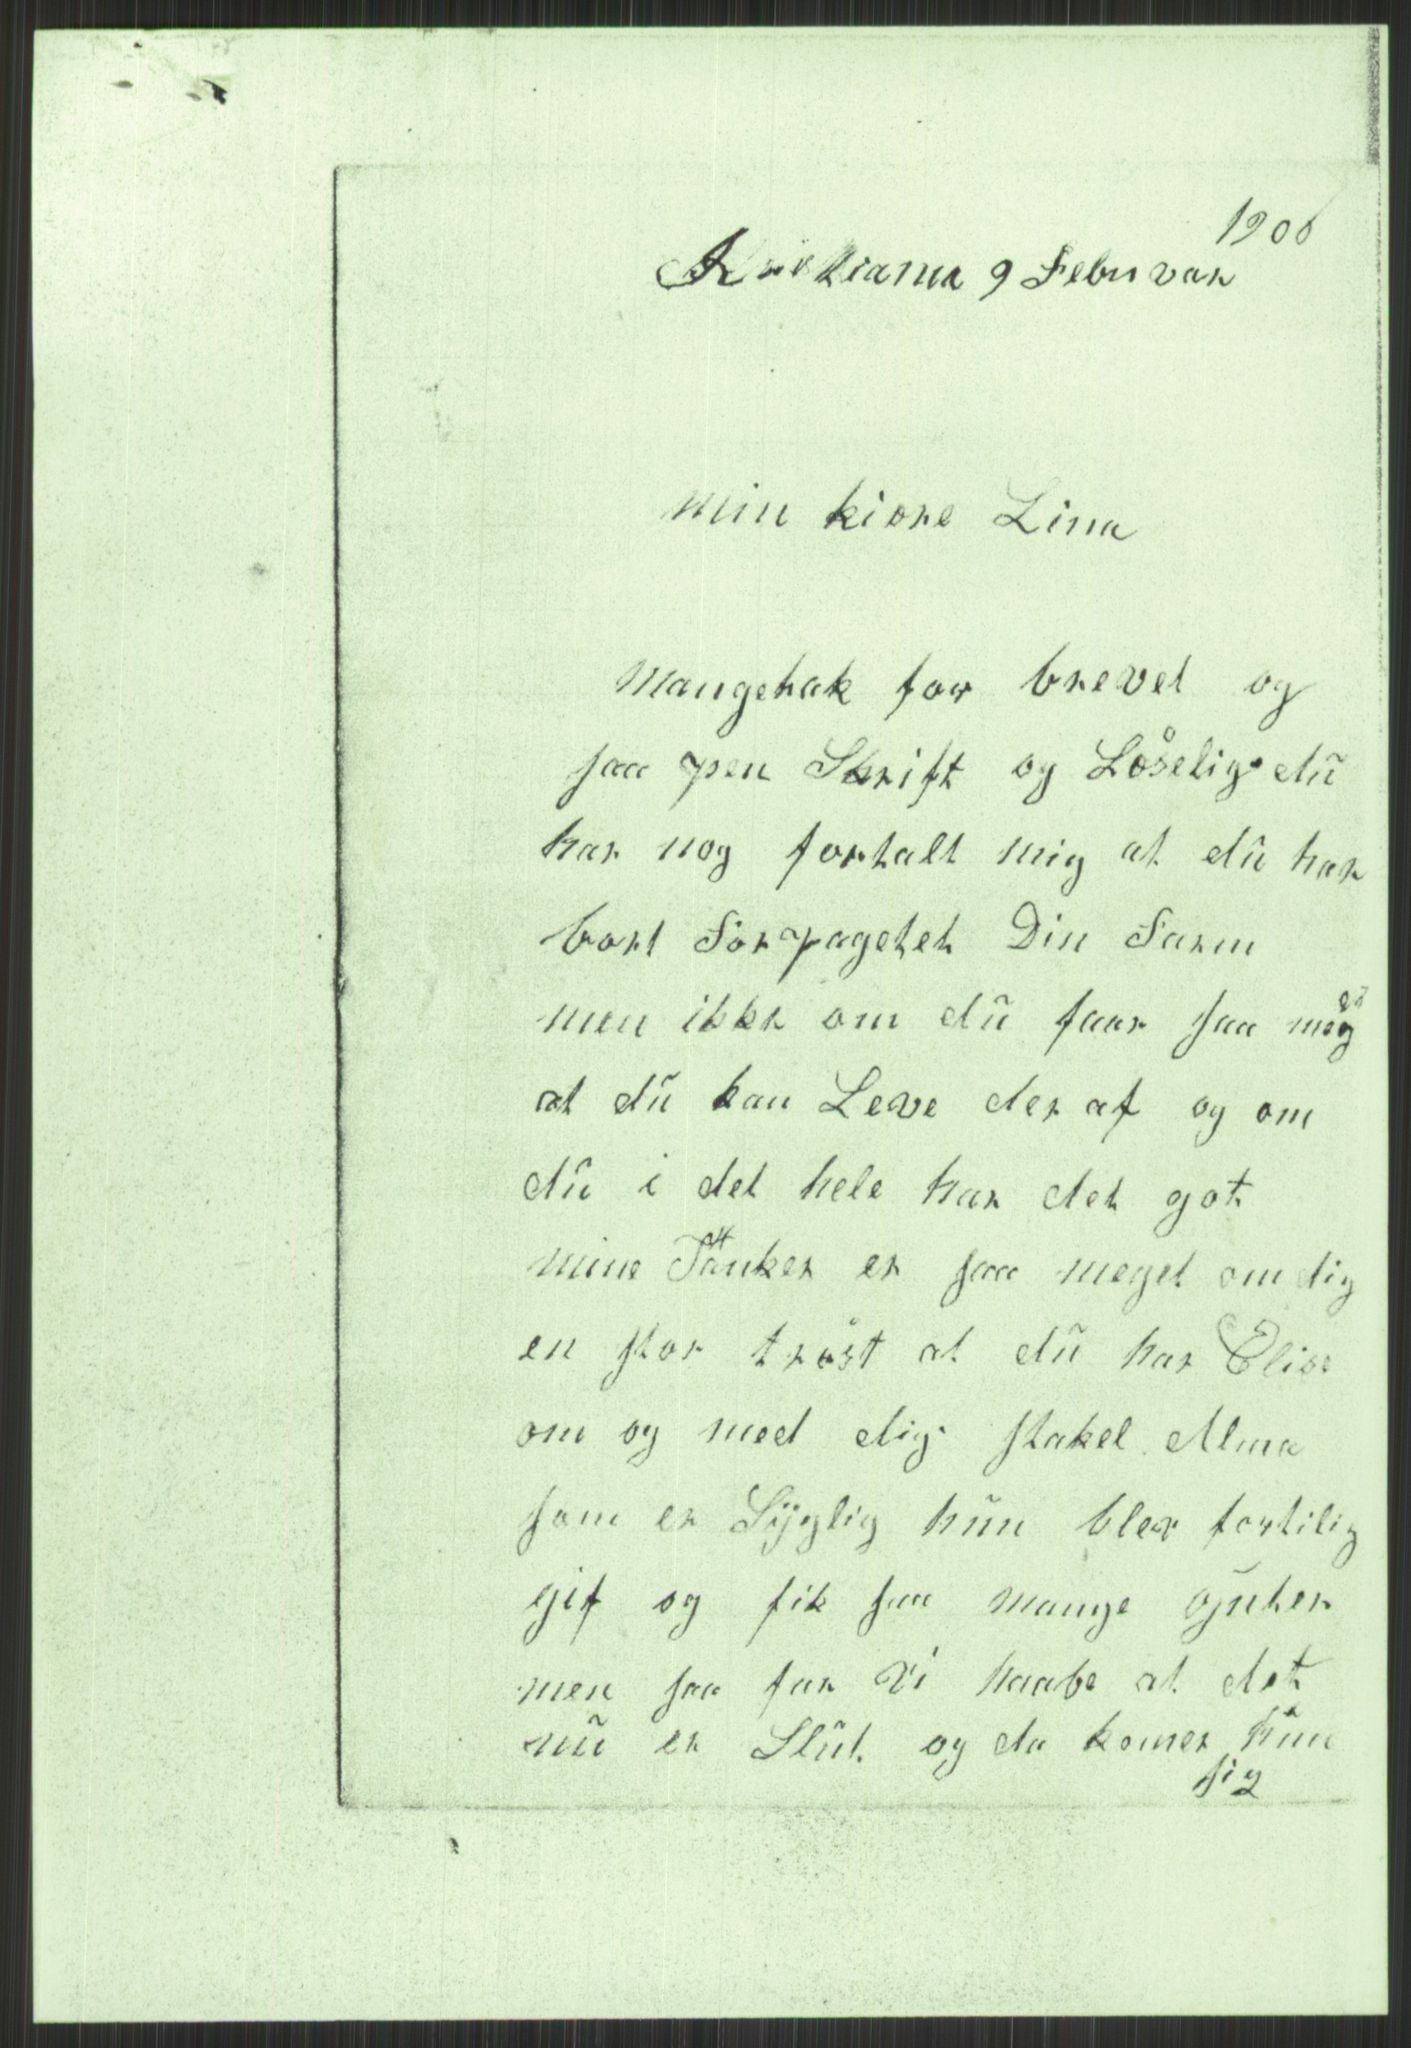 1906
Kristiania 9 Februvar
min kiære Lina
Mangetak for brevet og
saa pen Skrift og Løselig du
har nog fortalt mig at du har
bort Forpagetet Din Farm
men ikke om du faar saa meg
at du kan Leve der af og om
du i det hele har det got
mine Tänker er saa meget om dig
en stor trøst at du har Elise
om og med dig. stakel Alma
som er Syglig hun blev fortilig
gif og fik saa mange
men saa far Vi haabe at det
nu er Slut. og da komer hun
sig